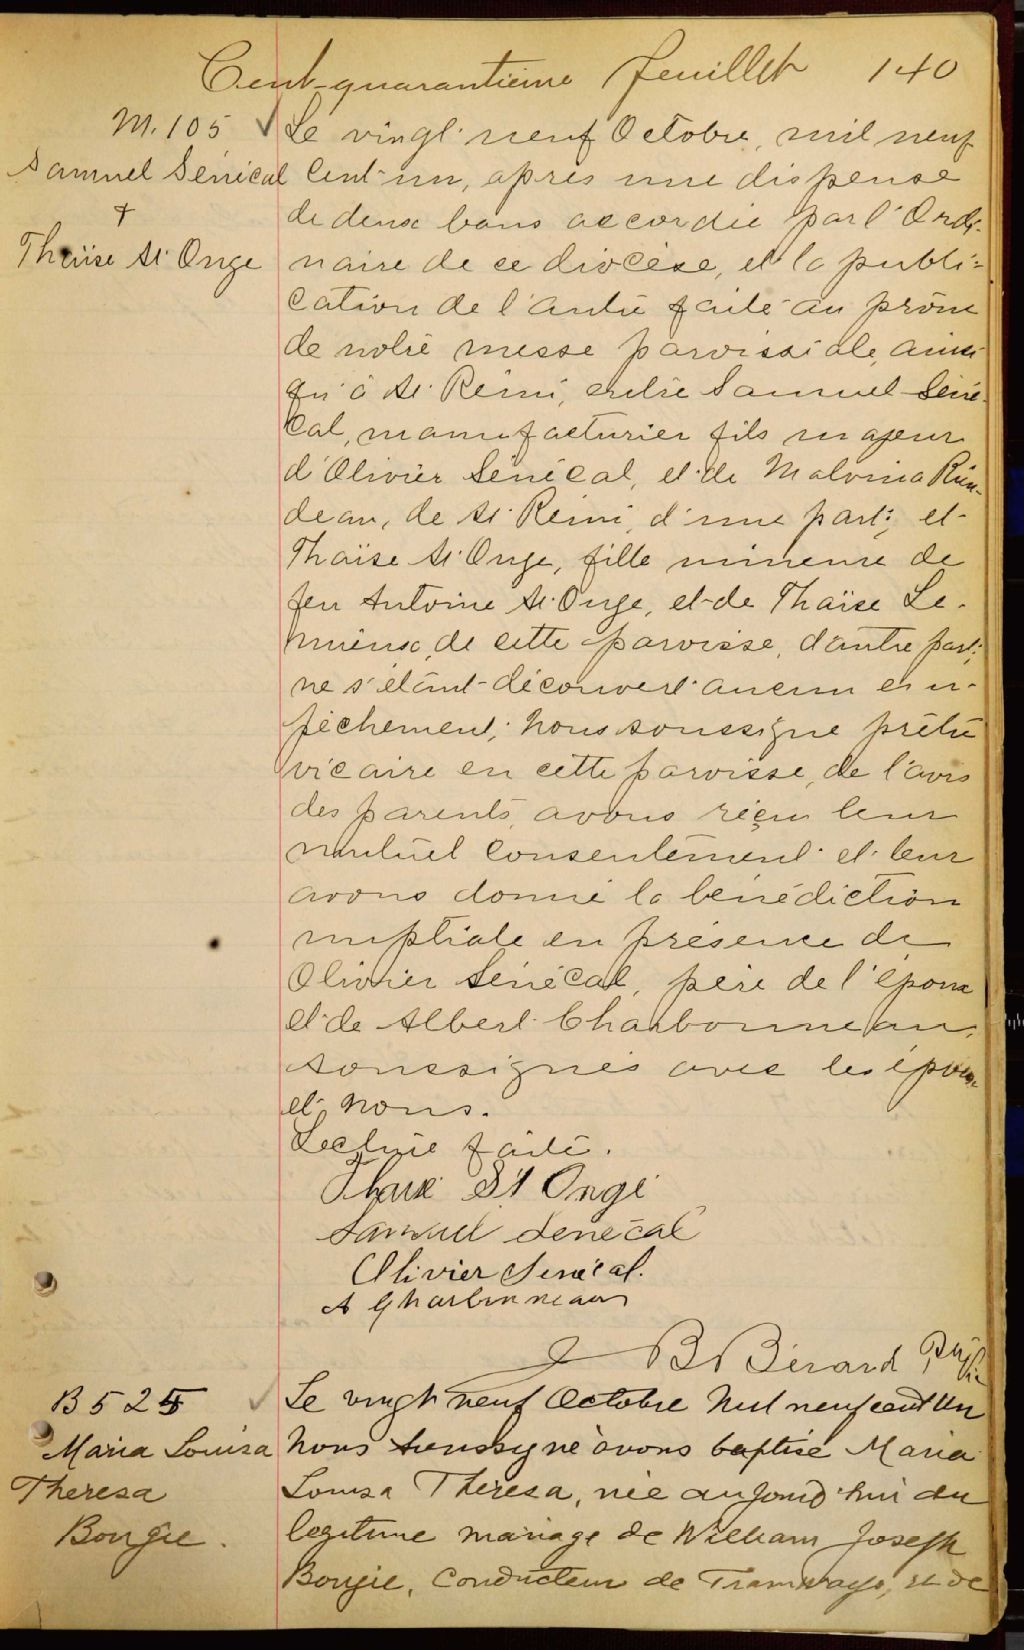 Cent-quarantième feuillet 140
M. 105
Samuel Sénécal
+
Thaïse St. Onge
Le vingt neuf Octobre, mil neuf
cent-un, après une dispense
de deux bans accordée par l'Ordi-
naire de ce diocèse, et la publi-
cation de l'autre faite au prône
de notre messe paroissiale, ainsi
qu'à St. Rémi, entre Samuel Séné-
cal, manufacturier fils majeur
d'Olivier Sénécal, et de Malvina
deau, de St. Rémi, d'une part; et
Thaïse St. Onge, fille mineure de
feu Antoine St. Onge, et de Thaïse Le-
mieux, de cette paroisse, d'autre part;
ne s'étant découvert aucun em-
pêchement; Nous soussigné prêtre
vicaire en cette paroisse, de l'avis
des parents, avons reçu leur
mutuel consentement et leur
avons donné la bénédiction
nuptiale en présence de
Olivier Sénécal, père de l'époux
et de Albert Charbonneau,
soussignés avec les époux
et nous.
Lecture faite.
Thaïse St Onge
Samuel Senécal
Olivier Senécal.
A Charbonneau
J B Bérard
B 525
Maria Louisa
Theresa
Bougie.
Le vingt neuf Octobre Mil neuf cent un
Nous Soussigné avons baptisé Maria
Louisa Theresa, née aujourd'hui du
legitime mariage de William Joseph
Bougie, Conducteur de Tramways, et de